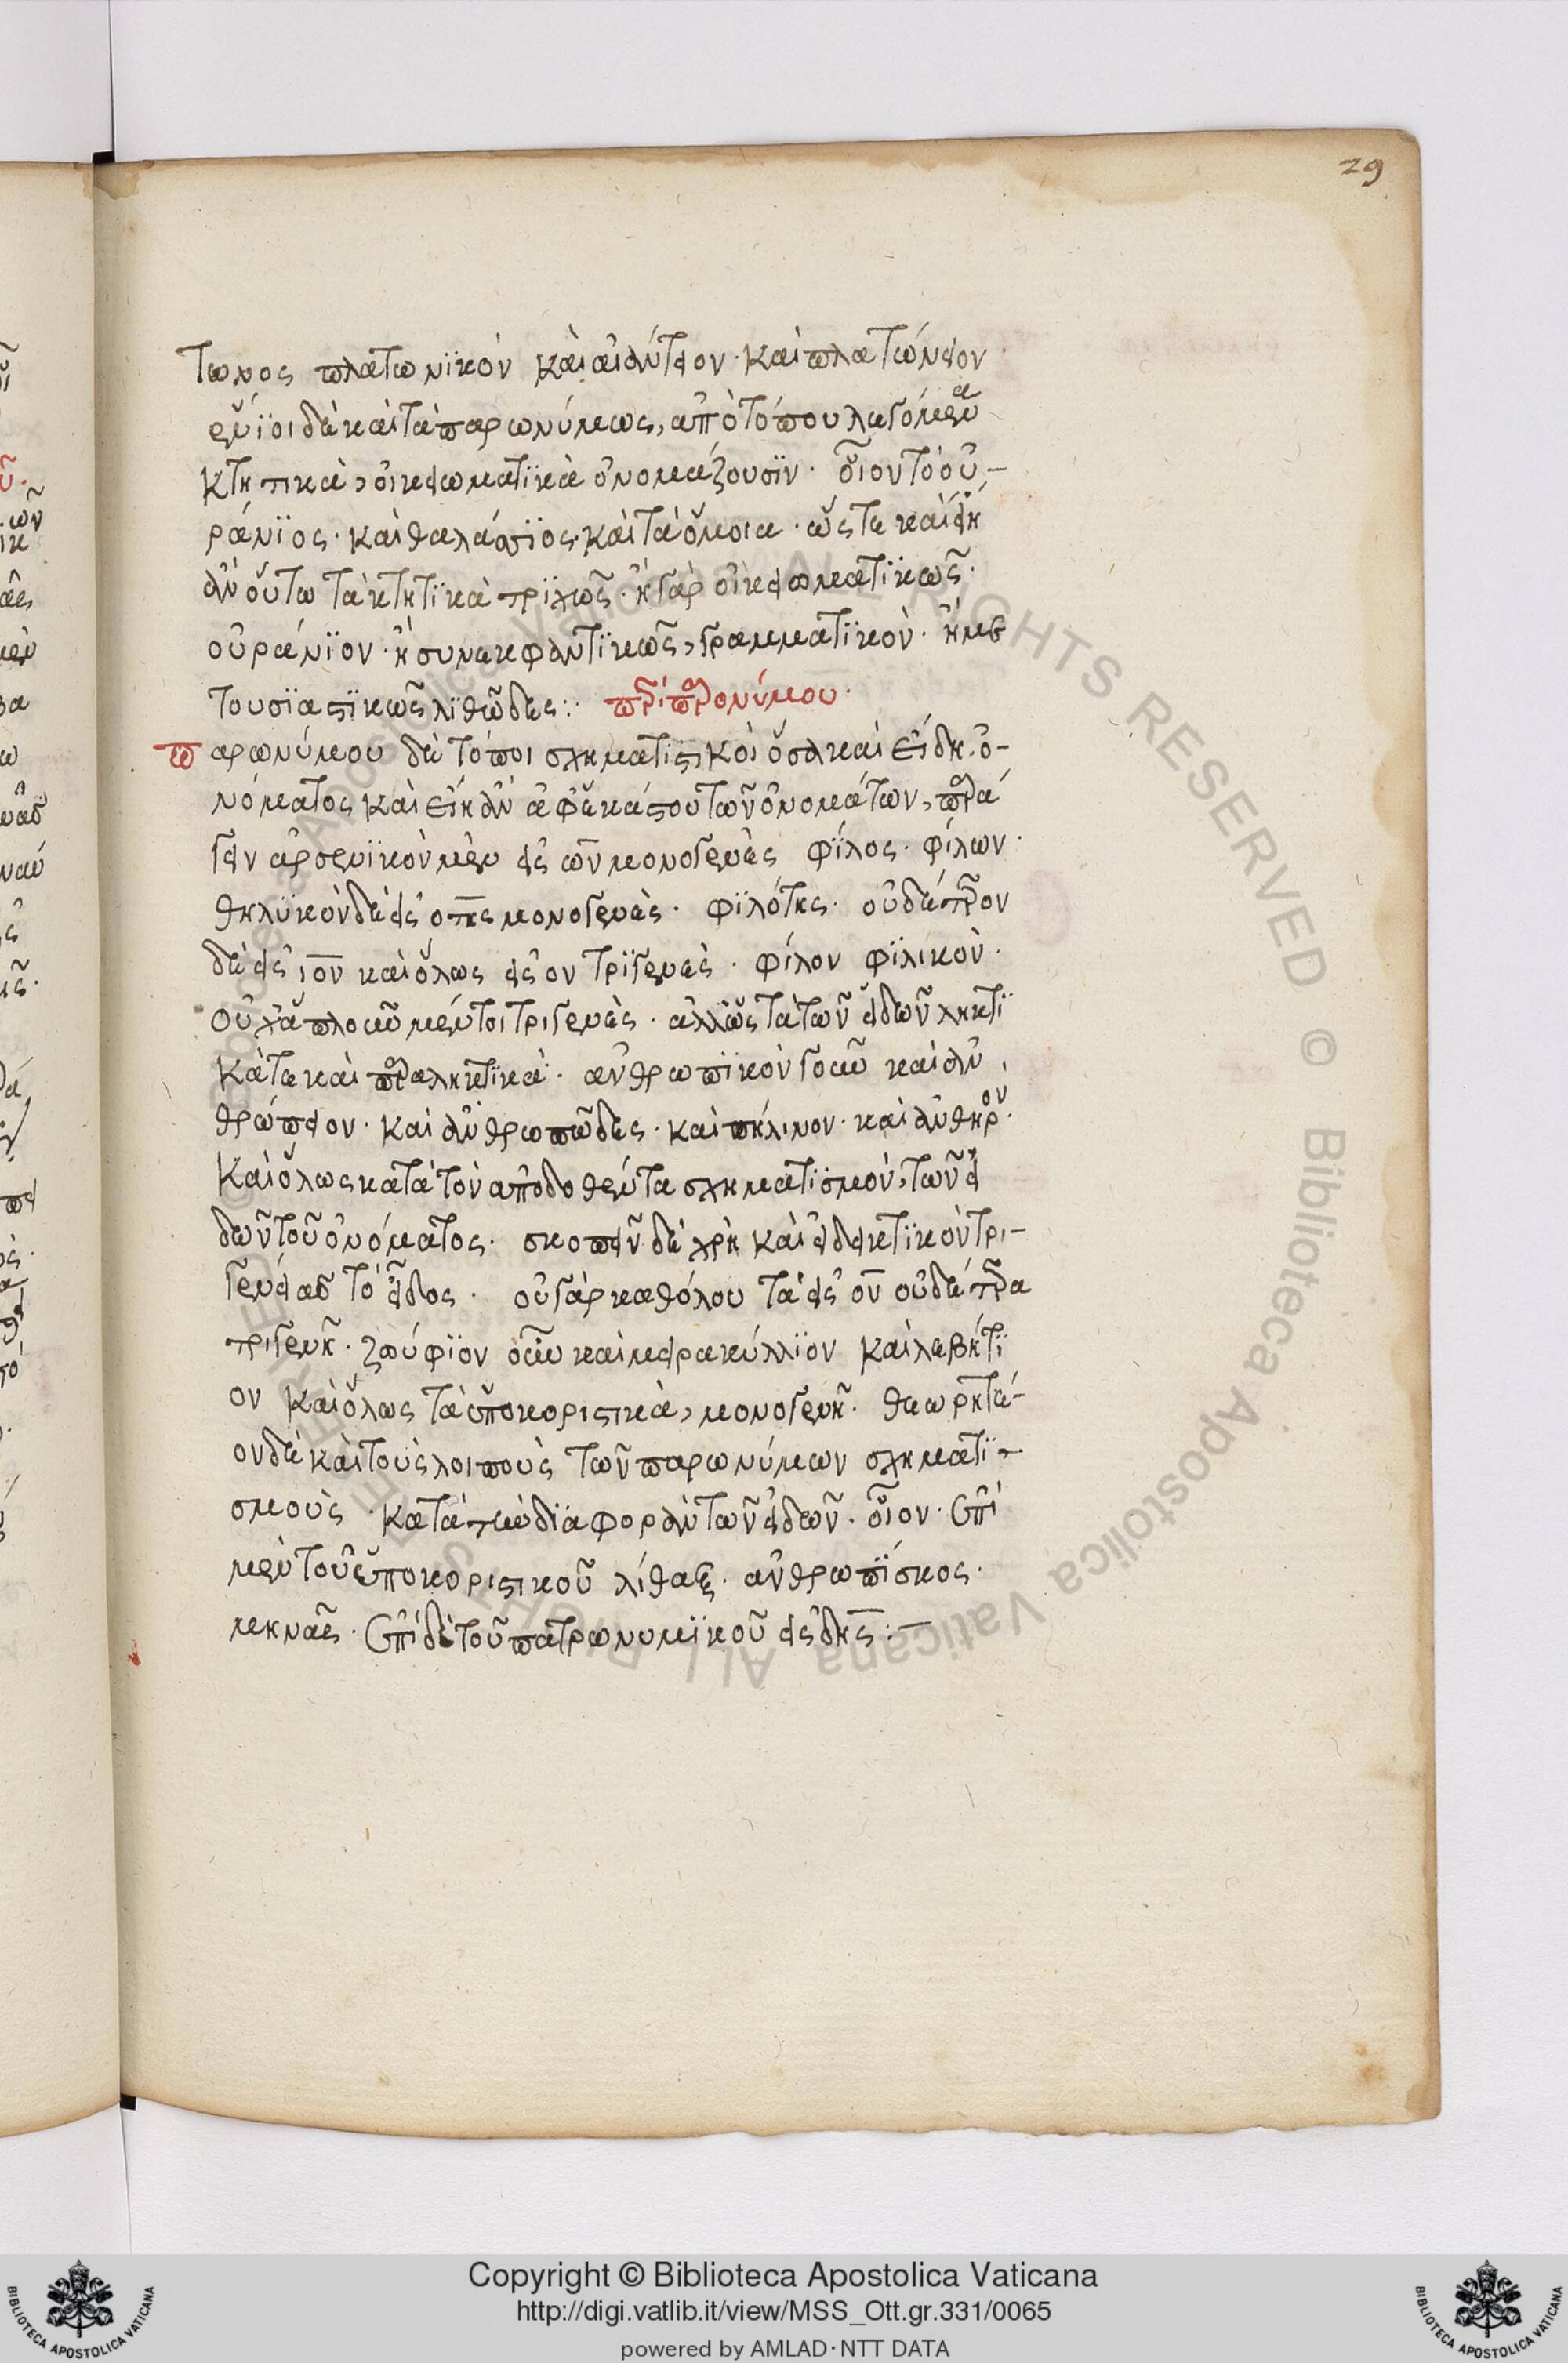 29
τωνος πλατωνϊκὸν καὶ αἰάντειον· καὶ πλατώνειον
ἔνϊοι δὲ καὶ τὰ παρωνύμως, ἀπὸ τόπου λεγόμενα
κτητικὰ, οἰκειωματϊκὰ ὀνομάζουσϊν· οἷον τὸ οὐ-
ράνϊος· καὶ θαλάσσϊος· καὶ τὰ ὅμοια· ὥστε καὶ εἴη
ἂν οὕτω τὰ κτητϊκὰ τρϊχῶς· ἢ γὰρ οἰκειωματϊκῶς·
οὐράνϊον· ἢ συνεκφαντϊκῶς, γραμματϊκὸν· ἢ με
τουσϊαστϊκῶς λϊθῶδες:· περὶ παρονύμου·
παρωνύμου δὲ τόποι σχηματιστικοὶ ὅσα καὶ εἴδη· ὀ-
νόματος καὶ εἴη ἂν ἀφ' ἑκάστου τῶν ὀνομάτων, παρά
γειν ἀρσενϊκὸν μὲν εἰς ων μονογενὲς φϊλος· φίλων·
θηλϋκὸν δὲ εἰς οτης μονογενὲς· φϊλότης· οὐδέτερον
δὲ εἰς ιον καὶ ὅλως εἰς ον τρϊγενὲς· φίλον φϊλικὸν·
οὐχ ἁπλοῦν μέντοι τριγενὲς· ἀλλ' ὥστε τῶν εἰδῶν ληκτϊ
κά τε καὶ παραληκτϊκὰ· ἀνθρωπϊκὸν γοῦν καὶ ἀν
θρώπειον· καὶ ἀνθρωπῶδες· καὶ πήλινον· καὶ ἀνθηρόν·
Καὶ ὅλως κατὰ τὸν ἀποδοθέντα σχηματϊσμὸν, τῶν εἰ
δῶν τοῦ ὀνόματος· σκοπεῖν δὲ χρὴ καὶ εἰ δεικτϊκὸν τρι-
γενείας τὸ εἶδος· οὐ γὰρ καθόλου τὰ εἰς ον οὐδέτερα
τριγενῆ· ζωύφϊον οὖν καὶ μειρακύλλϊον καὶ λεβήτϊ
ον καὶ ὅλως τὰ ὑποκοριστικὰ, μονογενῆ· θεωρητέ-
ον δὲ καὶ τοὺς λοιποὺς τῶν παρωνύμων σχηματϊ-
σμοὺς· κατὰ τὴν δϊαφορὰν τῶν εἰδῶν· οἷον· ἐπὶ
μὲν τοῦ ὑποκοριστικοῦ λίθαξ· ἀνθρωπϊσκος·
μηνᾶς· ἐπὶ δὲ τοῦ πατρωνυμϊκοῦ εἰς δης:—
Copyright © Biblioteca Apostolica Vaticana
http://digi.vatlib.it/view/MSS_Ott.gr.331/0065
powered by AMLAD·NTT DATA